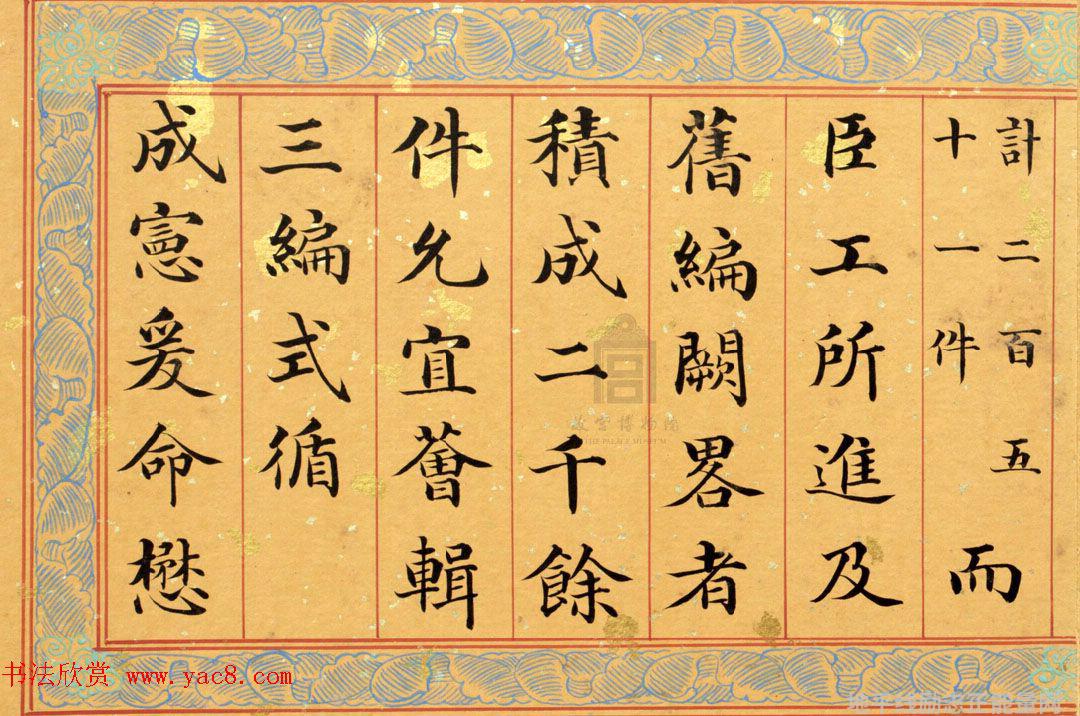 計二百五
十一件而
臣工所進及
舊編闕畧者
積成二千餘
件允宜薈輯
三編式循
成憲爰命懋
故宮博物院
THE PALACE MUSEUM
书法欣赏 www.yac8.com